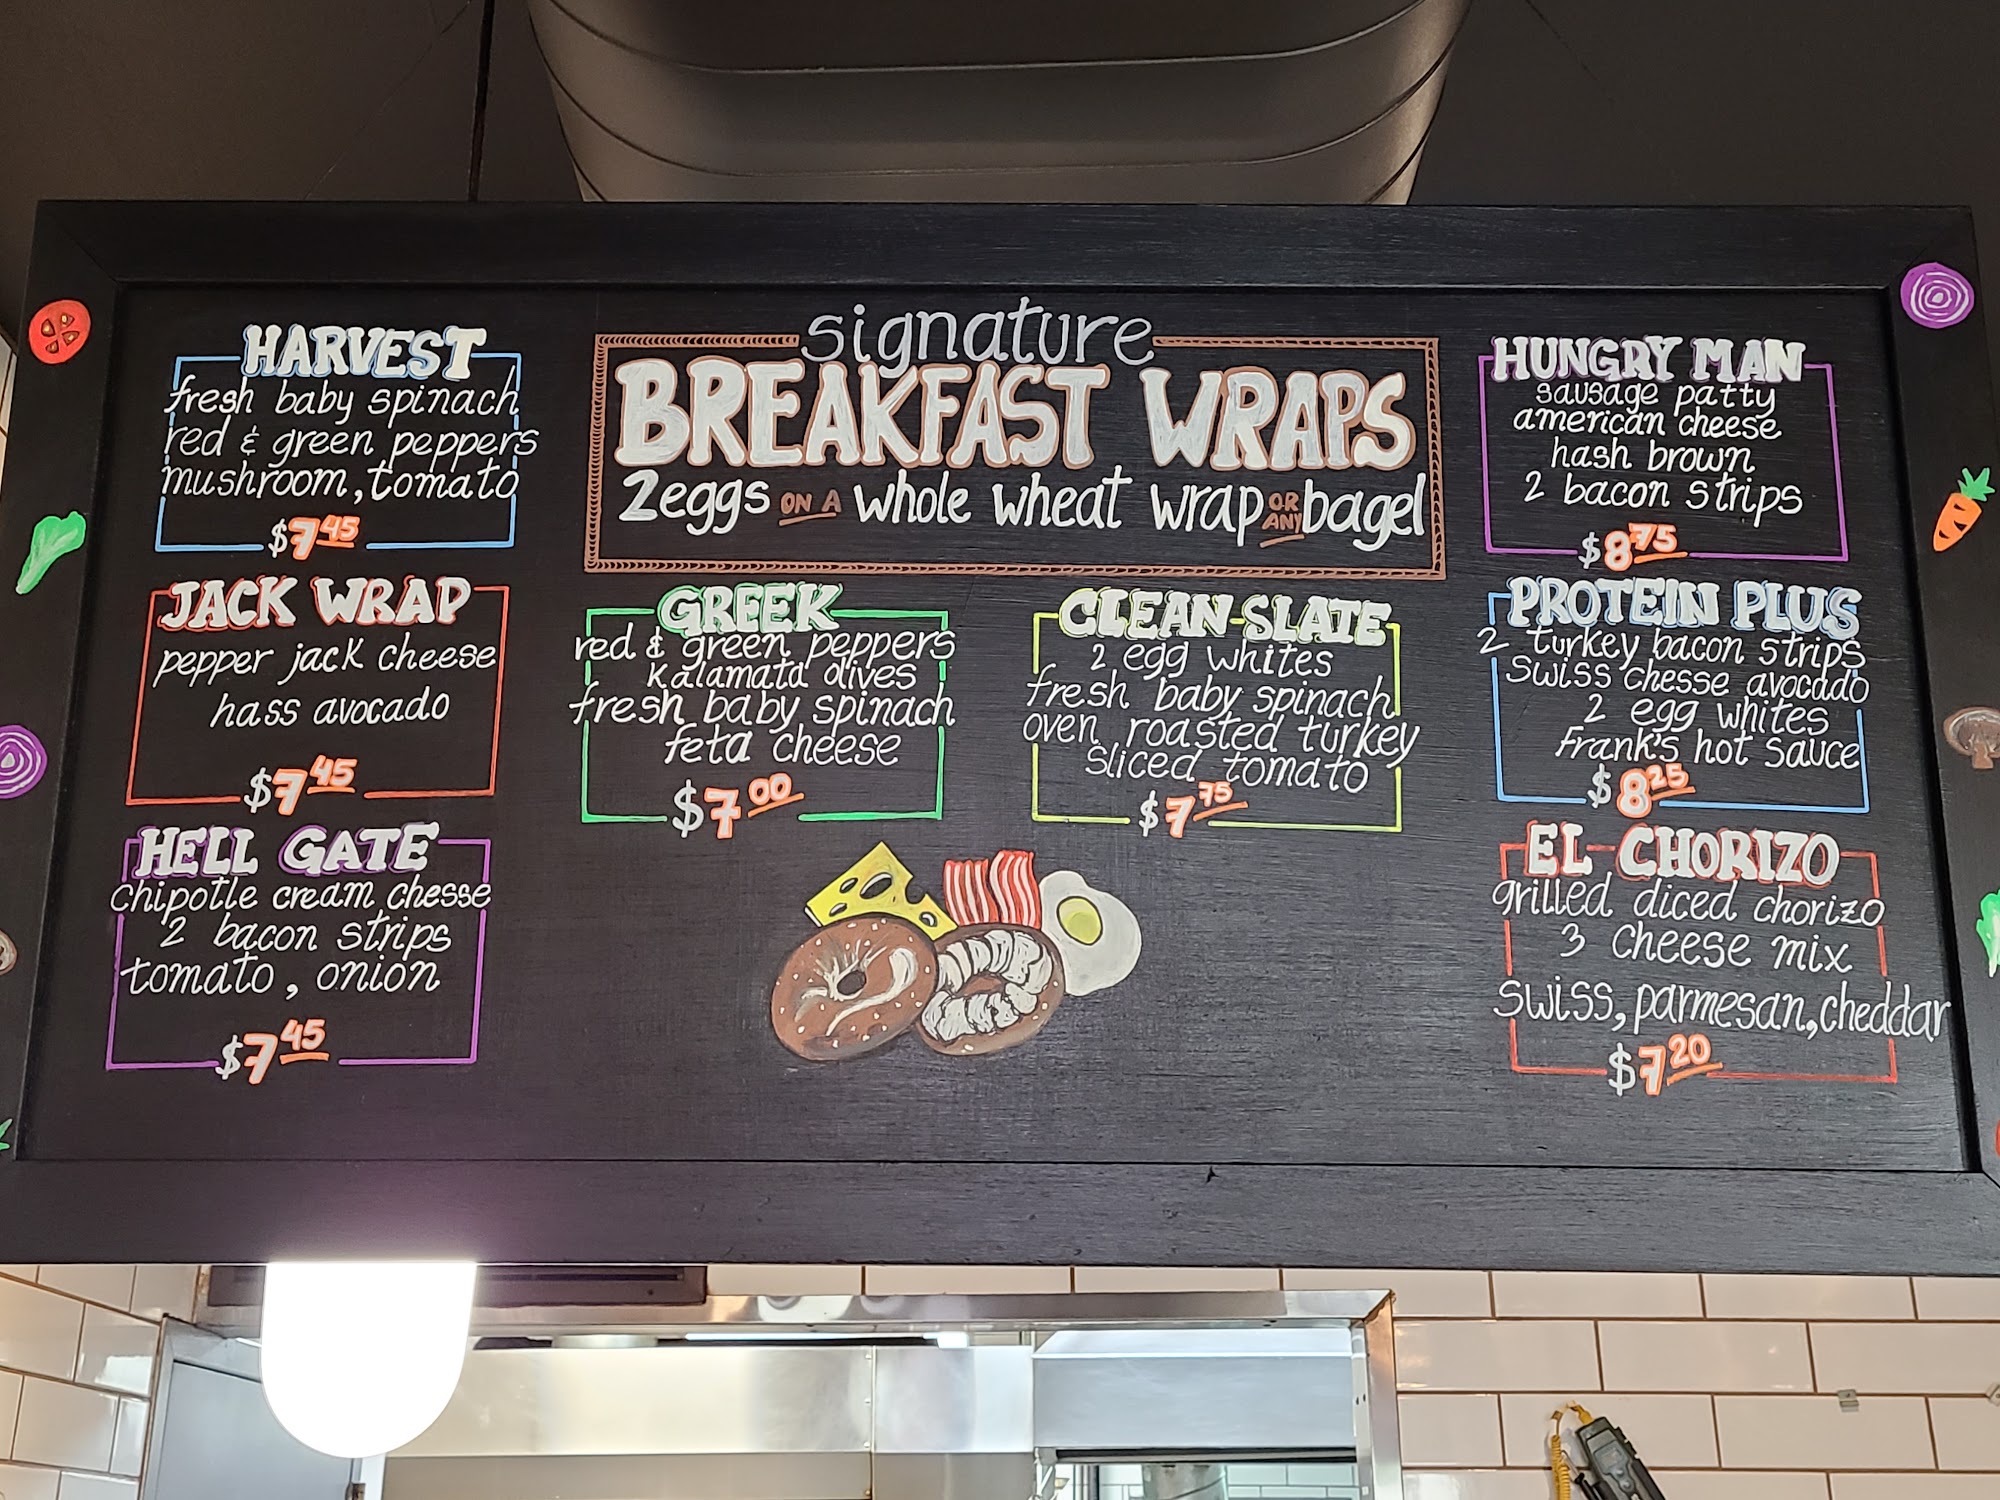 signature
BREAKFAST WRAPS
2 eggs ON A whole wheat wrap OR ANY bagel
HARVEST
fresh baby spinach
red & green peppers
mushroom, tomato
$7.45
JACK WRAP
pepper jack cheese
hass avocado
$7.45
HELL GATE
chipotle cream chesse
2 bacon strips
tomato, onion
$7.45
GREEK
red & green peppers
kalamata olives
fresh baby spinach
feta cheese
$7.00
CLEAN SLATE
2 egg whites
fresh baby spinach
oven roasted turkey
sliced tomato
$7.75
HUNGRY MAN
sausage patty
american cheese
hash brown
2 bacon strips
$8.75
PROTEIN PLUS
2 turkey bacon strips
swiss chesse avocado
2 egg whites
Frank's hot sauce
$8.25
EL CHORIZO
grilled diced chorizo
3 cheese mix
swiss, parmesan, cheddar
$7.20